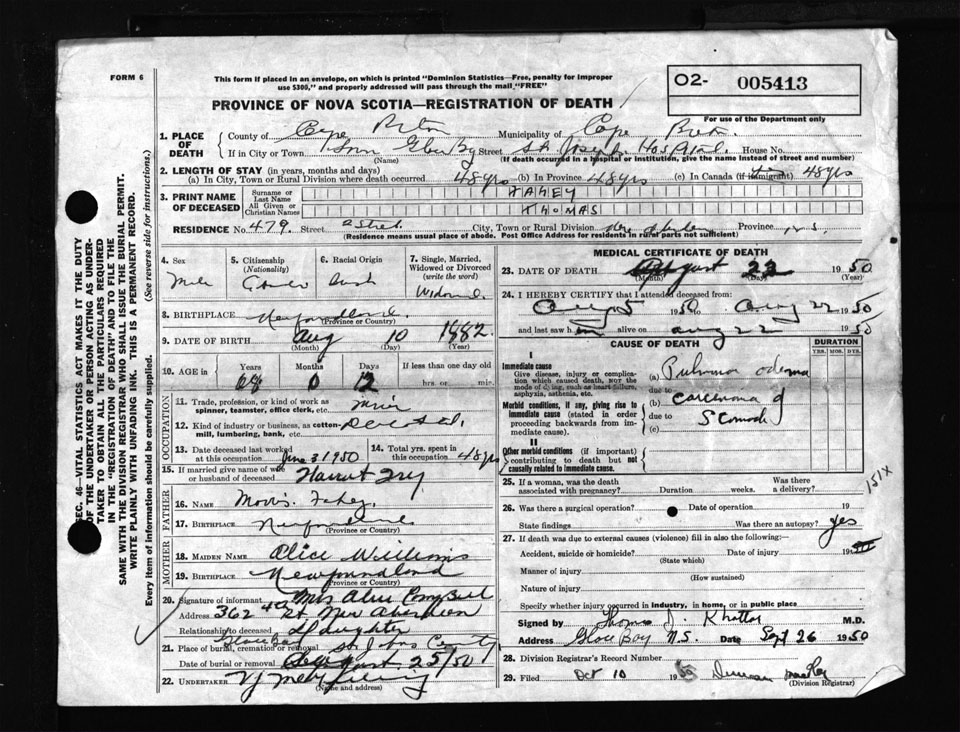 FORM 6
This form if placed in an envelope, on which is printed "Dominion Statistics—Free, penalty for improper
use $300," and properly addressed will pass through the mail "FREE"
O2- 005413
For use of the Department only
PROVINCE OF NOVA SCOTIA—REGISTRATION OF DEATH
1. PLACE OF DEATH
County of Cape Breton Municipality of Cape Breton
If in City or Town Town Glace Bay Street St. Joseph Hospital House No.
(Name) (If death occurred in a hospital or institution, give the name instead of street and number)
2. LENGTH OF STAY (in years, months and days)
(a) In City, Town or Rural Division where death occurred 48 yrs (b) In Province 48 yrs (c) In Canada (if immigrant) 48 yrs
3. PRINT NAME OF DECEASED
Surname or Last Name FAHEY
All Given or Christian Names THOMAS
RESIDENCE No. 479 Street City, Town or Rural Division New Aberdeen Province N.S.
(Residence means usual place of abode. Post Office Address for residents in rural parts not sufficient)
4. Sex
5. Citizenship (Nationality)
6. Racial Origin
7. Single, Married, Widowed or Divorced (write the word)
Male Irish
8. BIRTHPLACE Newfoundland
(Province or Country)
9. DATE OF BIRTH Aug 10 1882
(Month) (Day) (Year)
10. AGE in Years Months Days If less than one day old
68 0 12 hrs. or min.
OCCUPATION
11. Trade, profession, or kind of work as spinner, teamster, office clerk, etc. Miner
12. Kind of industry or business, as cotton-mill, lumbering, bank, etc.
13. Date deceased last worked at this occupation June 3 1950
14. Total yrs. spent in this occupation 48 yrs
15. If married give name of wife or husband of deceased
FATHER
16. NAME Fahey
17. BIRTHPLACE Newfoundland
(Province or Country)
MOTHER
18. MAIDEN NAME Alice Williams
19. BIRTHPLACE Newfoundland
(Province or Country)
20. Signature of informant Mrs Alice Campbell
Address 362 4th St. New Aberdeen
Relationship to deceased Daughter
21. Place of burial, cremation or removal Glace Bay County
Date of burial or removal August 25/50
22. UNDERTAKER
(Name and address)
MEDICAL CERTIFICATE OF DEATH
23. DATE OF DEATH August 22 1950
(Month) (Day) (Year)
24. I HEREBY CERTIFY that I attended deceased from:
Aug 5 1950 to Aug 22 1950
and last saw him alive on Aug 22 1950
CAUSE OF DEATH
DURATION
YRS. MOS. DYS.
I
Immediate cause
Give disease, injury or complication which caused death, NOT the mode of dying, such as heart failure, asphyxia, asthenia, etc.
(a) Pulmonary odema
due to
Morbid conditions, if any, giving rise to immediate cause (stated in order proceeding backwards from immediate cause).
(b) carcinoma of
due to
(c) Stomach
II
Other morbid conditions (if important) contributing to death but not causally related to immediate cause.
151X
25. If a woman, was the death associated with pregnancy? Duration weeks. Was there a delivery?
26. Was there a surgical operation? Date of operation 19
State findings Was there an autopsy? yes
27. If death was due to external causes (violence) fill in also the following:
Accident, suicide or homicide? Date of injury 19
(State which)
Manner of injury
(How sustained)
Nature of injury
Specify whether injury occurred in industry, in home, or in public place
Signed by Thomas J. Khattar M.D.
Address Glace Bay N.S. Date Sept 26 1950
28. Division Registrar's Record Number
29. Filed Oct 10 19 Duncan
(Division Registrar)
SEC. 46—VITAL STATISTICS ACT MAKES IT THE DUTY
OF THE UNDERTAKER OR PERSON ACTING AS UNDERTAKER
TO OBTAIN ALL THE PARTICULARS REQUIRED
IN THE "REGISTRATION OF DEATH" AND TO FILE THE
SAME WITH THE DIVISION REGISTRAR WHO SHALL ISSUE THE BURIAL PERMIT.
WRITE PLAINLY WITH UNFADING INK. THIS IS A PERMANENT RECORD.
Every item of information should be carefully supplied. (See reverse side for instructions.)